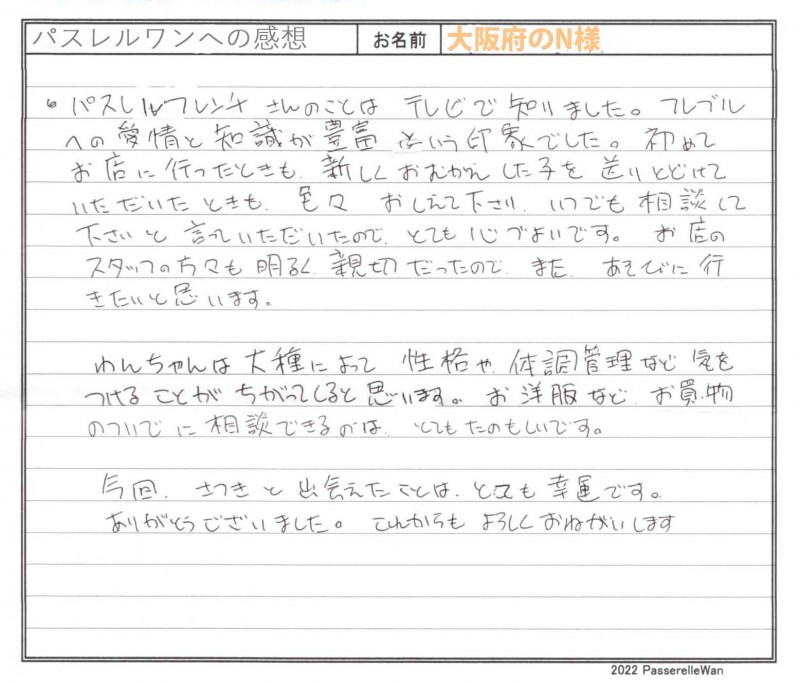 パスレルワンへの感想 お名前 大阪府のN様
パスレルフレンチ さんのことは テレビで 知りました。 フレブル
への 愛情と 知識が 豊富 という 印象でした。 初めて
お店に 行ったときも、新しく おむかえ した子を 送りとどけて
いただいた ときも、色々 おしえて下さり、いつでも 相談して
下さいと 言っていただいたので、とても 心づよいです。 お店の
スタッフの方々も 明るく、親切だったので、また、あそびに 行
きたいと思います。
わんちゃんは 犬種によって 性格や、体調管理など 気を
つける ことが ちがってくると 思います。 お洋服など、お買物
のついでに 相談できるのは、とてもたのもしいです。
今回、さつきと 出会えたことは、とても 幸運です。
ありがとうございました。 これからも よろしく おねがいします
2022 PasserelleWan